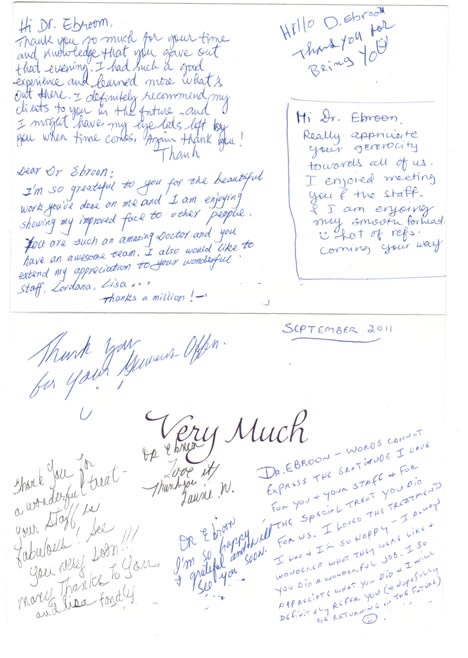 Hi Dr. Ebroom.
Thank you so much for your time
and knowledge that you gave out
that evening. I had such a good
experience and learned more what's
out there. I definitely recommend my
clients to you in the future and
I might have my eye lids left by
you when time comes. Again thank you!
Thank
Hello D. Ebroon
Thank you for
Being You
Hi Dr. Ebroon,
Really appriciate
your genorocity
towards all of us.
I enjoyed meeting
you & the staff.
& I am enjoying
my smooth forhead.
Lot of refs.
coming your way
Dear Dr Ebroon;
I'm so grateful to you for the beautiful
work you've done on me and I am enjoying
showing my improved face to other people.
You are such an amazing Doctor and you
have an awesome team. I also would like to
extend my appreciation to your wonderful
staff, Lordana, Lisa...
Thanks a million!
SEPTEMBER 2011
Thank You
for your Offer.
Very Much
Dr Ebroon
Love it!
Thankyou
Laurie W.
Thank You for
a wonderful treat-
your Staff is
fabulous! See
you very soon!!!
many Thanks to You
and Lisa
DR Ebroon
I'm so happy
& grateful and will
See you soon.
DR. EBROON - WORDS CANNOT
EXPRESS THE GRATITUDE I HAVE
FOR YOU & YOUR STAFF & FOR
THE SPECIAL TREAT YOU DID
FOR US. I LOVED THE TREATMENTS
I HAD & I'M SO HAPPY - I ALWAYS
WONDERED WHAT THEY WERE LIKE &
YOU DID A WONDERFUL JOB. I SO
APPRECIATE WHAT YOU DID & I WILL
DEFINITELY REFER YOU (& HOPEFULLY
BE RETURNING IN THE FUTURE)